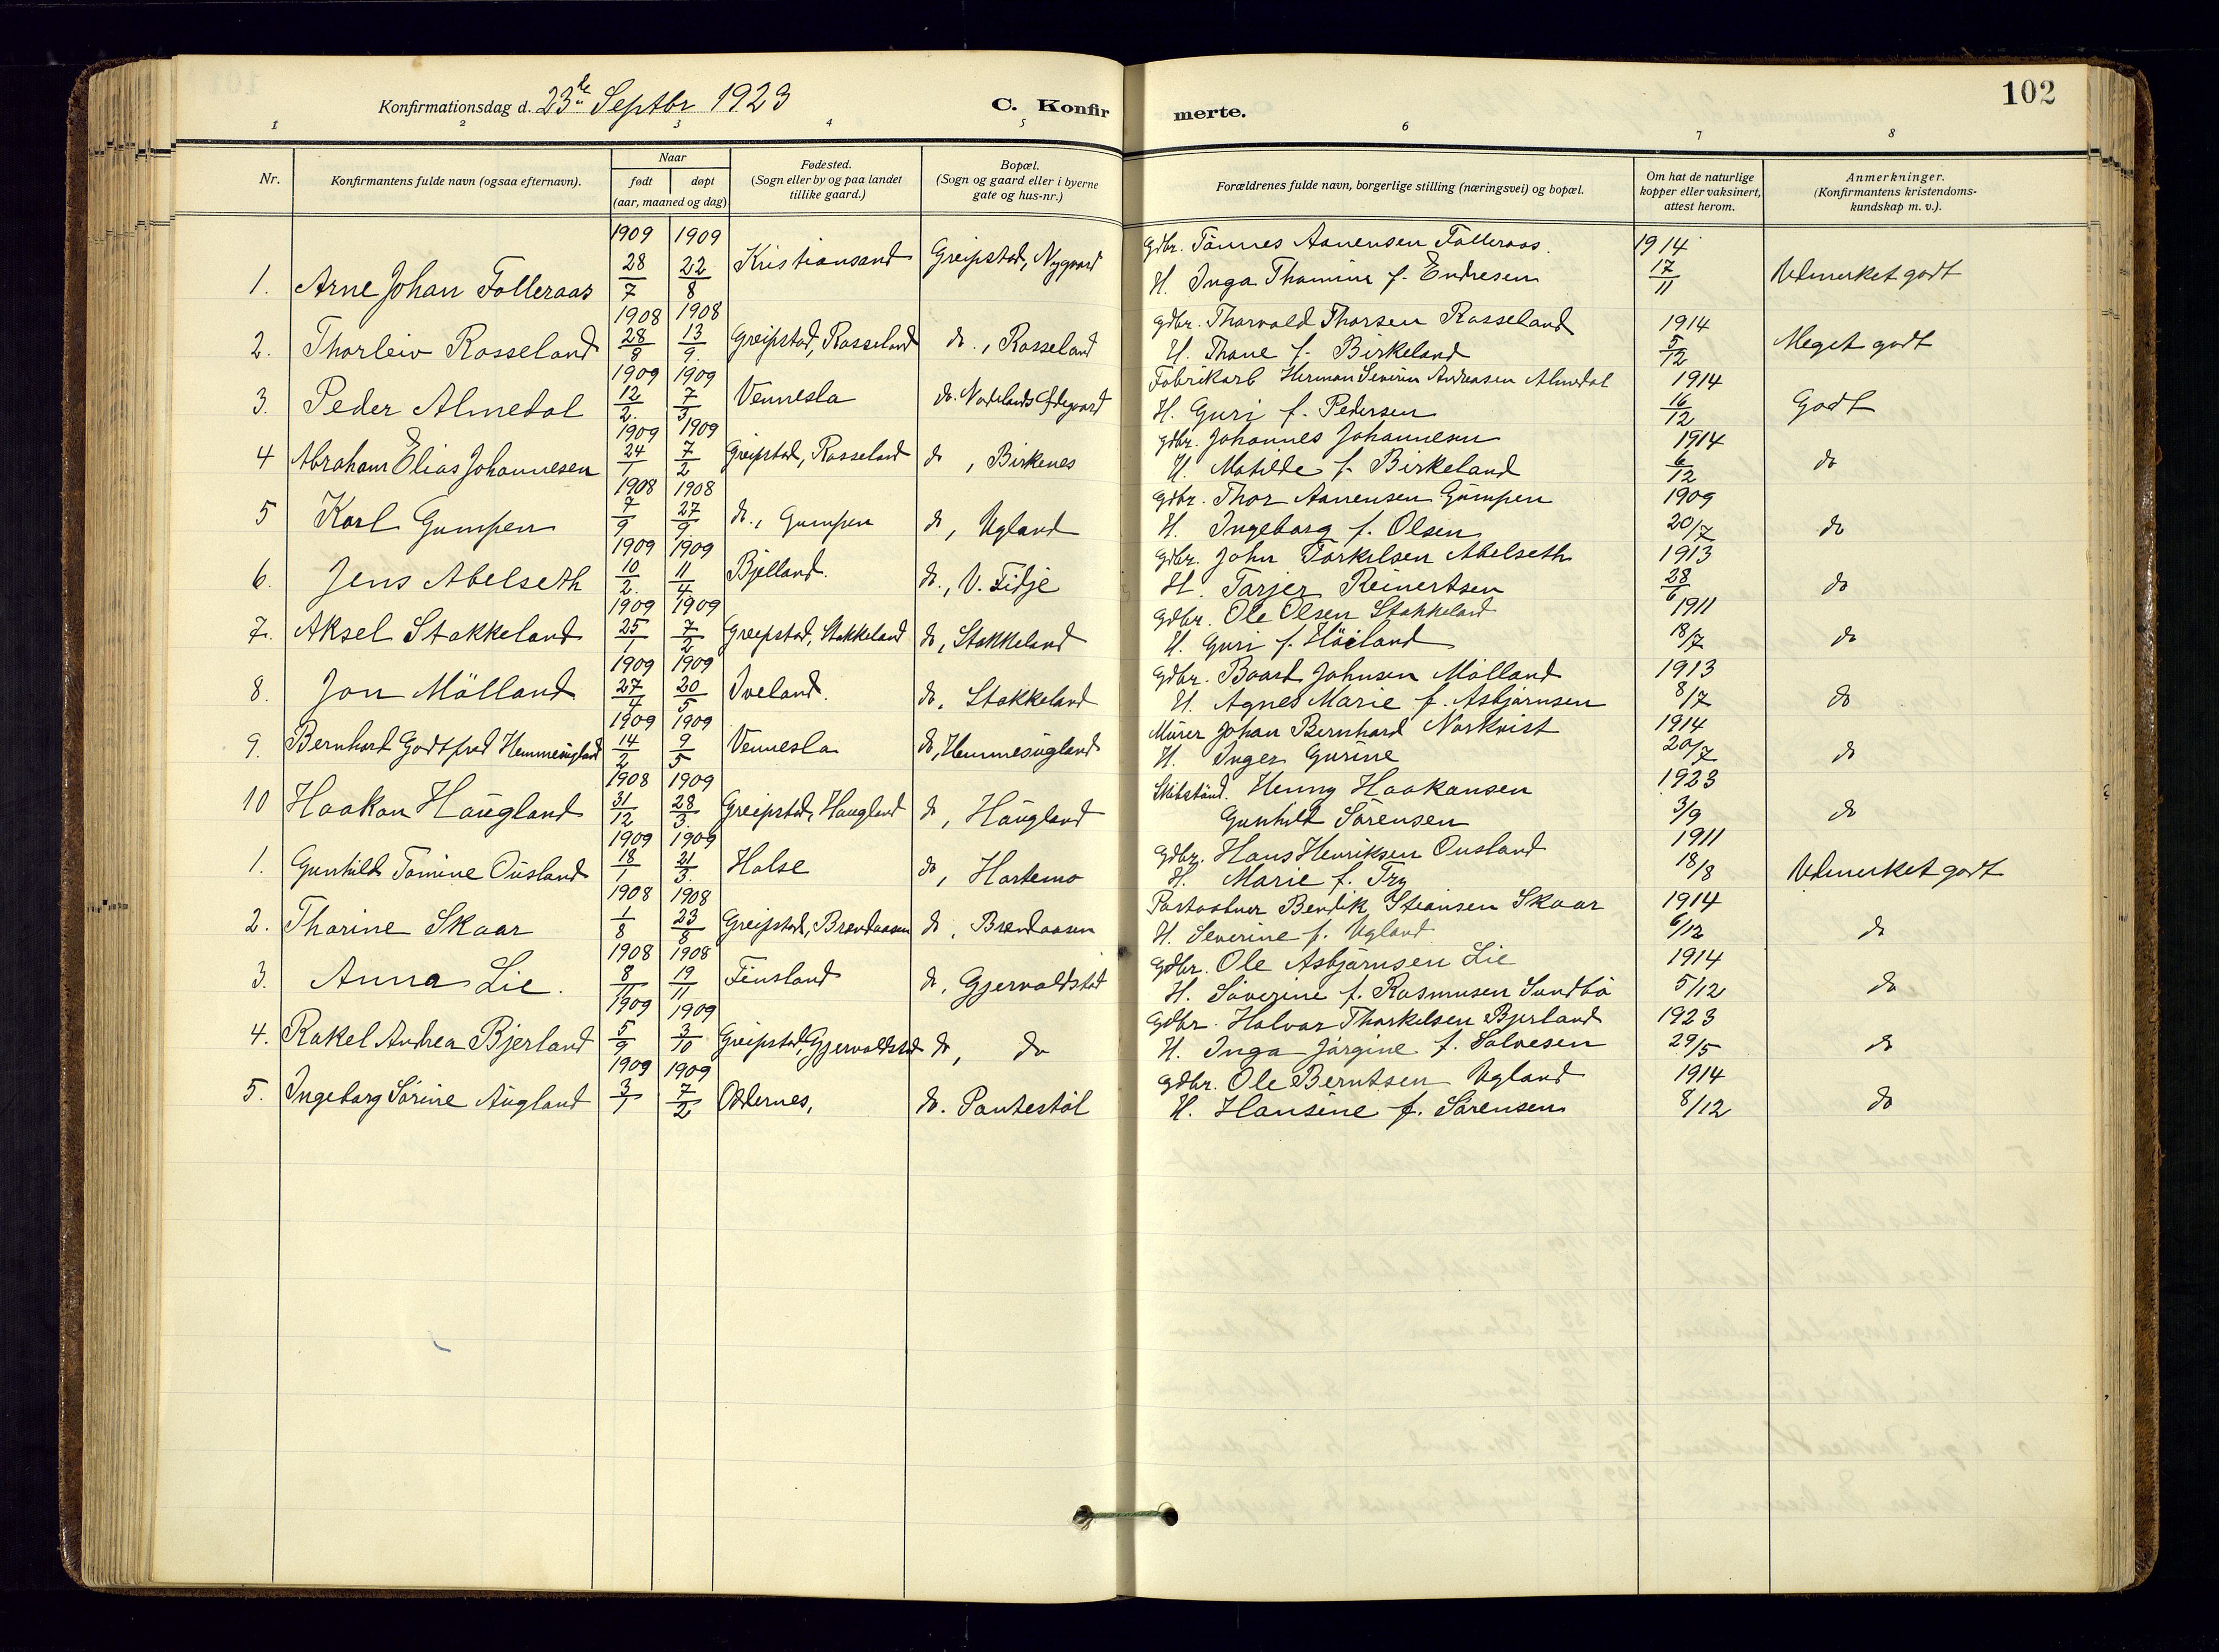 102
Konfirmationsdag d. 23de Septbr 1923
C. Konfirmerte.
1 2 3 4 5 6 7 8
Nr.
Konfirmantens fulde navn (ogsaa efternavn).
Naar
født
døpt
(aar, maaned og dag)
Fødested.
(Sogn eller by og paa landet
tillike gaard.)
Bopæl.
(Sogn og gaard eller i byerne
gate og hus-nr.)
Forældrenes fulde navn, borgerlige stilling (næringsvei) og bopæl.
Om hat de naturlige
kopper eller vaksinert,
attest herom.
Anmerkninger.
(Konfirmantens kristendoms-
kundskap m. v.).
1909 1909 Gdbr. Tönnes Aanensen Folleraas. 1914
1. Arne Johan Folleraas 28/7 22/8 Kristiansand Greipstad, Nygaard H. Inga Thomine f. Endresen 17/11 Udmerket godt
1908 1908 Gdbr. Thorvald Thorsen Rosseland 1914
2. Thorleiv Rosseland 28/8 13/9. Greipstad, Rosseland do., Rosseland H. Thone f. Birkeland 5/12 Meget godt
1909 1909 Fabrikarb Herman Severin Andreasen Almedal 1914
3. Peder Almedal 12/2. 7/3 Vennesla do. Nodelands Ødegaard H. Guri f. Pedersen 16/12 Godt
1909 1909 gdbr. Johannes Johannesen 1914
4 Abraham Elias Johannesen 24/1 7/2 Greipstad, Rosseland do, Birkenes H. Matilde f. Birkeland 6/12 do
1908 1908 Gdbr. Thor Aanensen Gumpen 1909
5 Karl Gumpen 7/9 27/9 do., Gumpen do, Ugland H. Ingeborg f. Olsen 20/7 do
1909 1909 Gdbr. John Torkilsen Abelseth 1913
6. Jens Abelseth 10/2. 11/4 Bjelland. do., V. Tidje H. Tarjer Reinertsen 28/6 do
1909 1909 Gdbr. Ole Olsen Stokkeland 1911
7. Aksel Stokkeland 25/1 7/2 Greipstad, Stokkeland do, Stokkeland H. Guri f. Höiland 18/7 do
1909 1909 Gdbr. Baard Johnsen Mölland 1913
8. Jon Mölland 27/4 20/5 Iveland. do, Stokkeland H. Agnes Marie f. Asbjörnsen 8/7 do
1909 1909 Murer Johan Bernhard Norkvist 1914
9. Bernhard Godtfred Hemmesugland 14/2 9/5 Vennesla do, Hemmesugland H. Inger Gurine 20/7 do
1908 1909 Henny Haakonsen 1923
10 Haakon Haugland 31/12 28/3. Greipstad, Haugland do, Haugland Gunhild Sörensen 3/9 do
1909 1909 Gdbr. Hans Henriksen Ousland 1911
1. Gunhild Tomine Ousland 18/1 21/3. Holse do, Hortemo H. Marie f. Try 18/8 Udmerket godt
1908 1908 Postaabner Bendik Steansen Skaar 1914
2. Thorine Skaar 1/8 23/8 Greipstad, Brendaasen do, Brendaasen H. Severine f. Ugland 6/12 do
1908 1908 Gdbr. Ole Asbjörnsen Lie 1914
3. Anna Lie. 8/11 19/11 Finsland do, Gjervoldstad H. Söverine f. Rasmusen Sundbö 5/12 do
1909 1909 Gdbr. Halvor Thorkelsen Bjerland 1923
4. Rakel Andrea Bjerland 5/9 3/10 Greipstad, Gjervoldstad do, do H. Inga Jörgine f. Salvesen 29/5 do
1909 1909 Gdbr. Ole Berntsen Ugland 1914
5. Ingeborg Sörine Augland 3/1 7/2 Oddernes, do. Pantestöl H. Hansine f. Sörensen 8/12 do